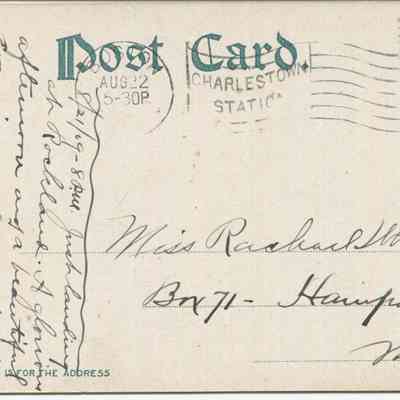 Post Card.
AUG 22
5-30P
CHARLESTOWN
STATION
8/21/19-8 P.M. Just landing
at Rockland. A glorious
afternoon and a beautiful
Miss Rachael
Box 71- Hamp
M
IS FOR THE ADDRESS